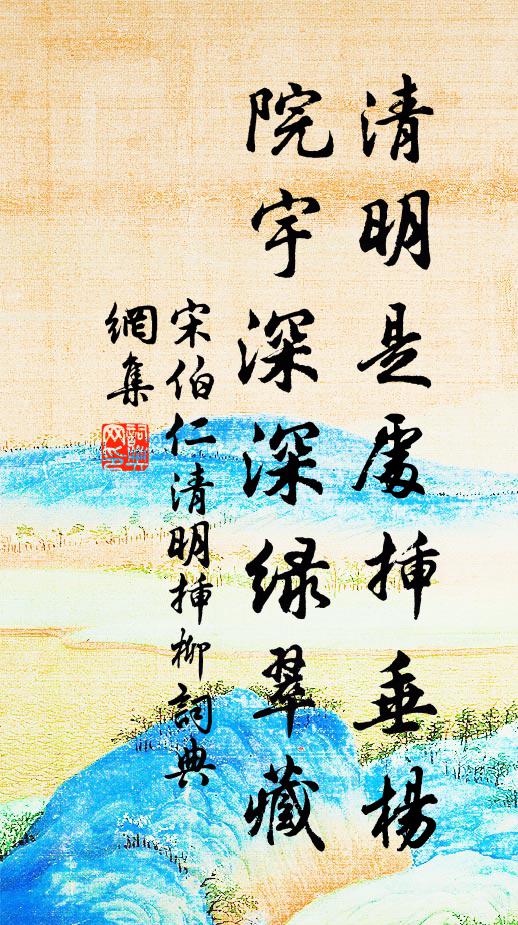 清明是處插垂楊
院宇深深綠翠藏
宋伯仁清明插柳詞典
網集